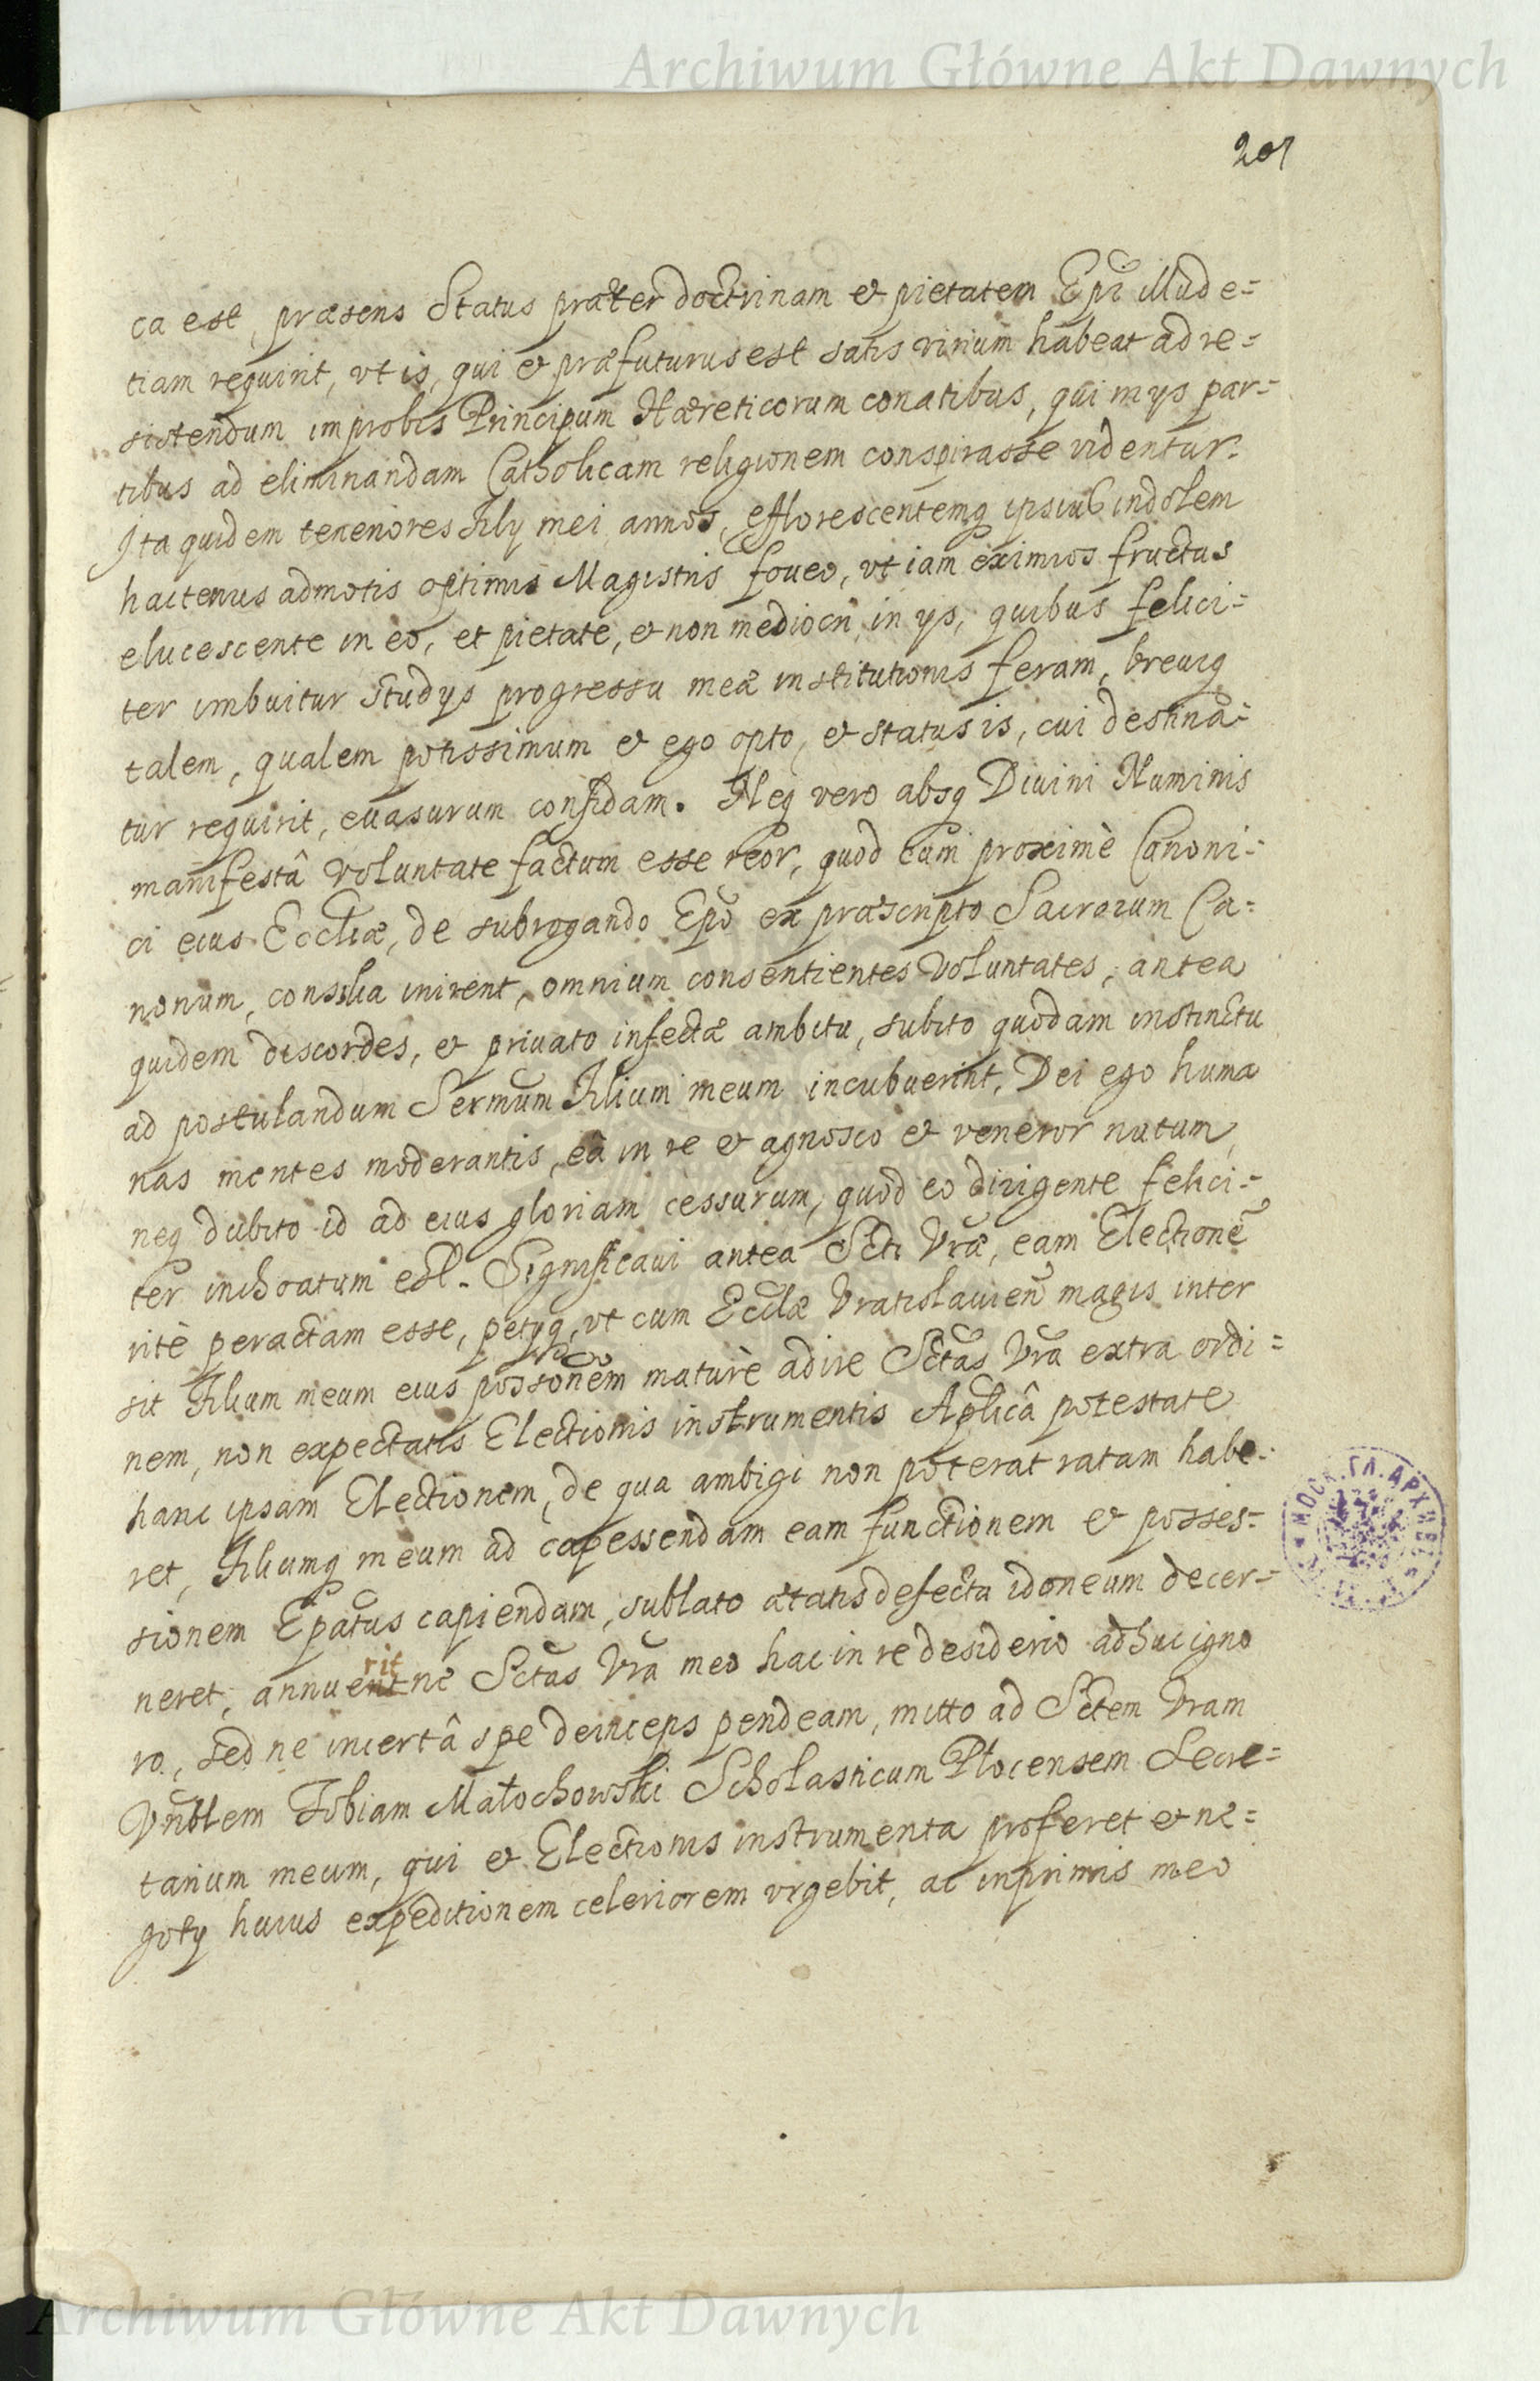 Archiwum Główne Akt Dawnych
201
ca est, præsens Status præter doctrinam et pietatem Epi illud e=
tiam requirit, vt is, qui ei præfuturus est satis virium habeat ad re=
sistendum improbis Principum Hæreticorum conatibus, qui in ys par=
tibus ad eliminandam Catholicam religionem conspirasse videntur.
Ita quidem teneriores Fily mei annos, efflorescentemq ipsius indolem
hactenus admotis optimis Magistris foueo, vt iam eximios fructus
elucescente in eo, et pietate, et non mediocri, in ys, quibus felici=
ter imbuitur Studys progressu meæ institutionis feram, breuiq
talem, qualem potissimum et ego opto, et status is, cui destina=
tur requirit, euasurum confidam. Neq vero absq Diuini Numinis
manifestâ voluntate factum esse reor, quod cum proximè Canoni=
ci eius Eccliæ, de subrogando Epo ex præscripto Sacrorum Ca=
nonum, consilia inirent, omnium consentientes voluntates, antea
quidem discordes, et priuato infectæ ambitu, subito quodam instinctu
ad postulandum Sermum Filium meum incubuerint, Dei ego huma
nas mentes moderantis, eâ in re et agnosco et veneror nutum,
neq dubito id ad eius gloriam cessurum, quod eo dirigente felici=
ter inchoatum est. Significaui antea Scti Vræ, eam Electione
ritè peractam esse, petyq, vt cum Eccliæ Vratislauien magis inter
sit Filium meum eius possonem maturè adire Sctas Vra extra ordi=
nem, non expectatis Electionis instrumentis Aplicâ potestate
hanc ipsam Electionem, de qua ambigi non poterat ratam habe=
ret, Filiumq meum ad capessendam eam functionem et posses=
sionem Epatus capiendam, sublato ætatis defectu idoneum decer=
rit
neret, annuerit ne Sctas Vra meo hac in re desiderio adhuc igno
ro, sed ne incertâ spe deinceps pendeam, mitto ad Sctem Vram
Vnblem Tobiam Małochowski Scholasticum Plocensem Secre=
tarium meum, qui et Electionis instrumenta proferet et ne=
goty huius expeditionem celeriorem vrgebit, ac inprimis meo
МОСК. ГЛ. АРХИВЪ
Archiwum Główne Akt Dawnych